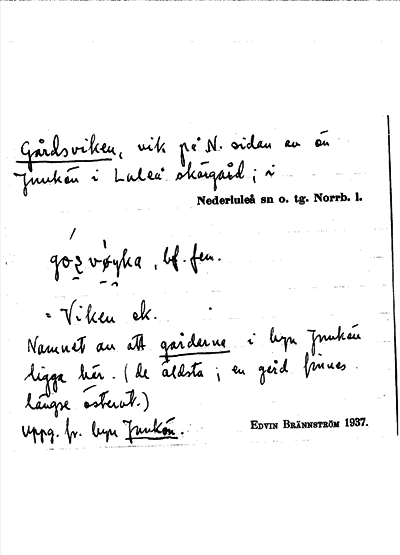 Gårdsviken, vik på N. sidan av ön
Junkön i Luleå skärgård; i
Nederluleå sn o. tg. Norrb. l.
bf. fen.
= Viken ek.
Namnet av att gårdarne i byn Junkön
ligga här. (de äldsta; en gård finnes
längre österut.)
Uppg. fr. byn Junkön.
EDVIN BRÄNNSTRÖM 1937.